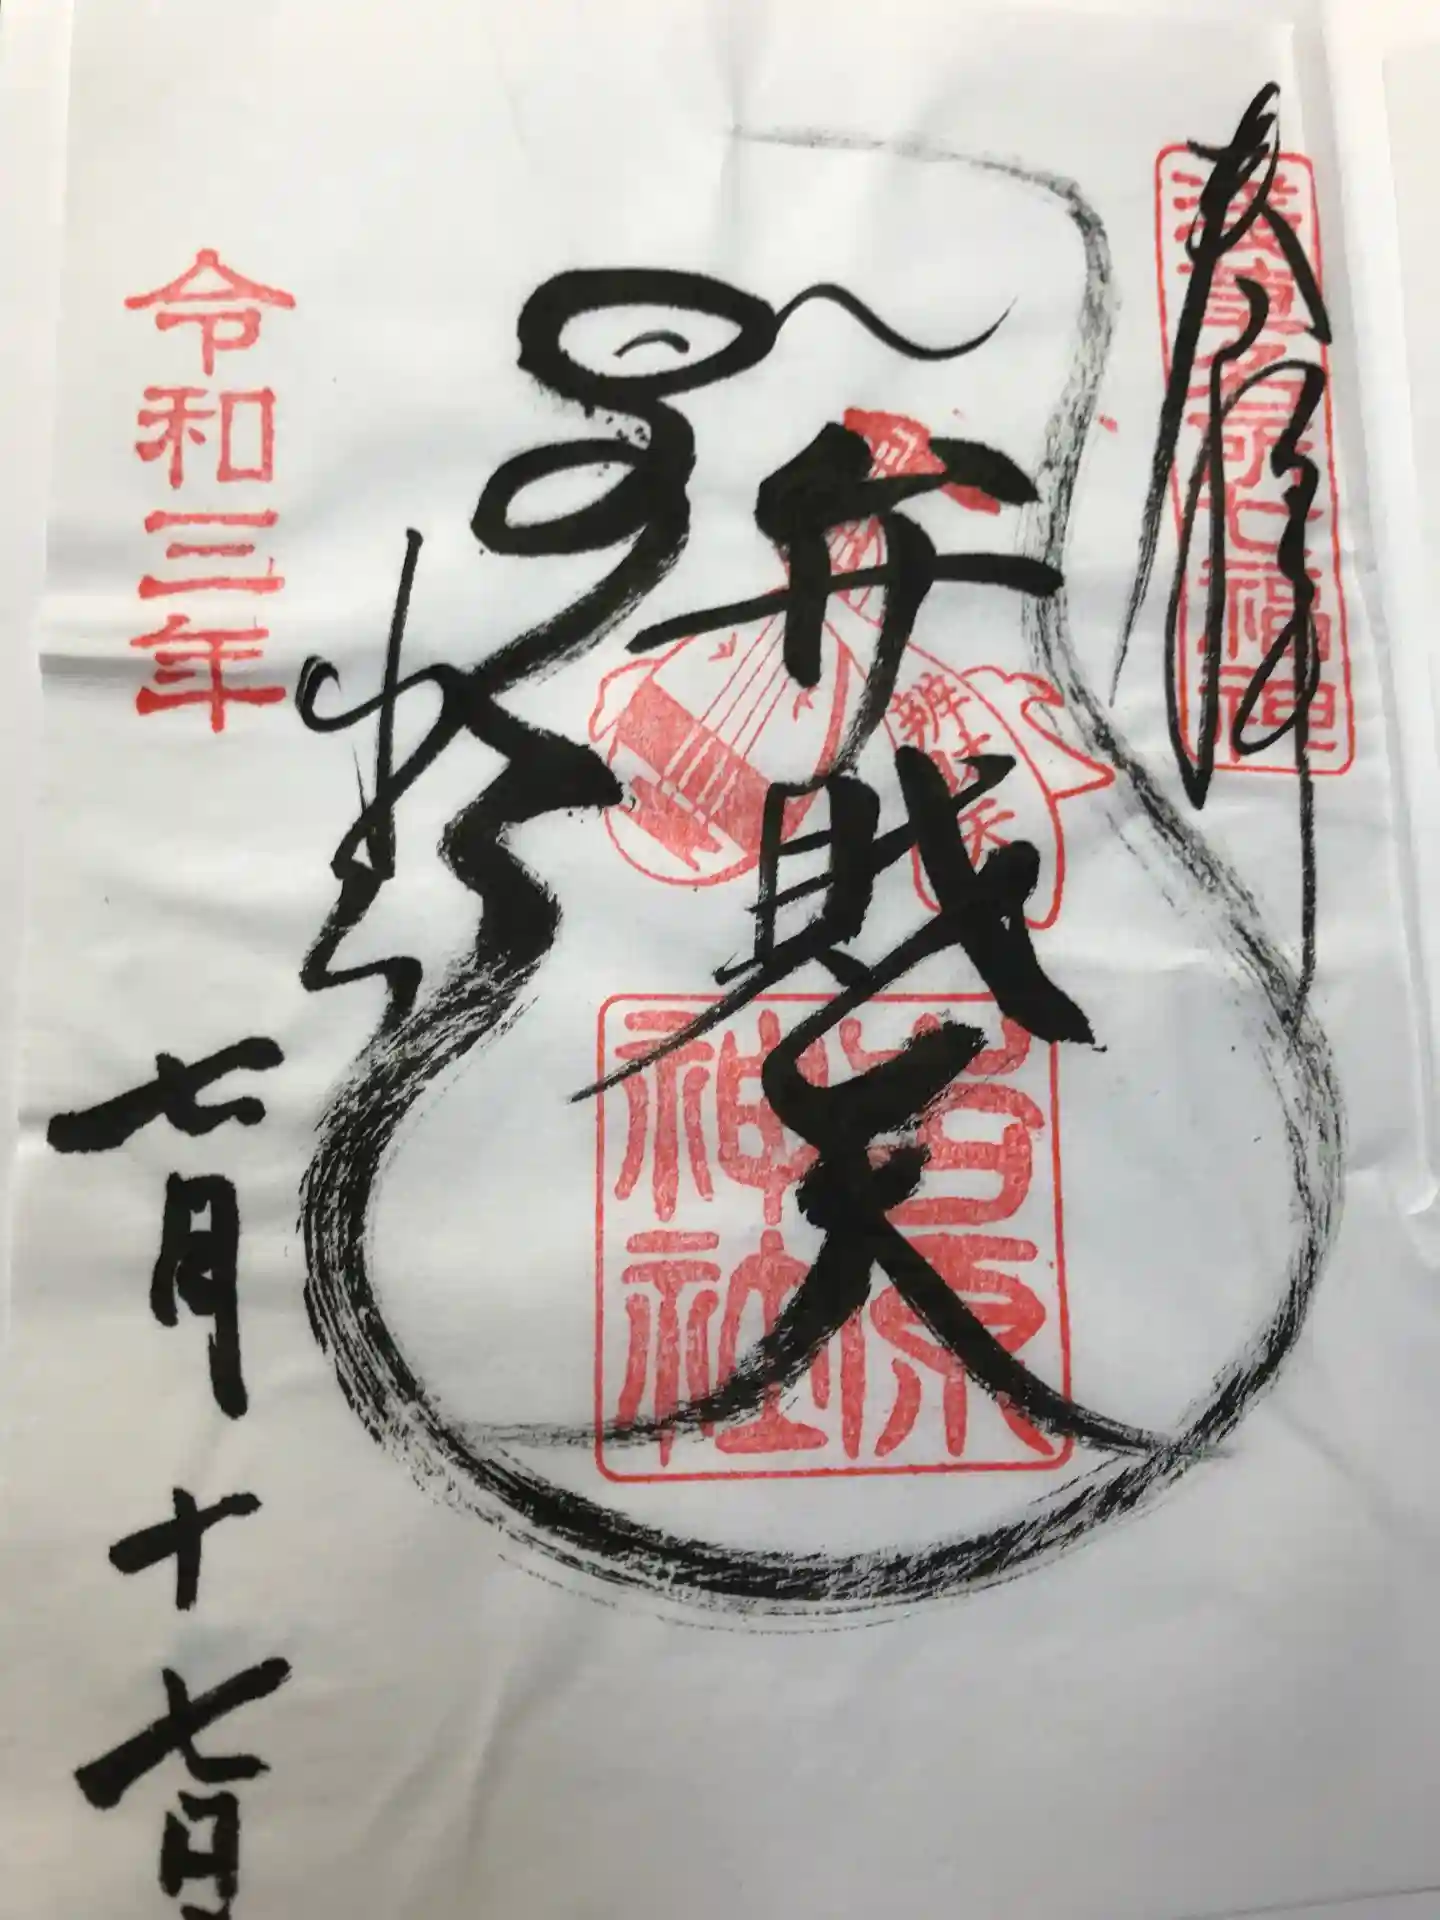 奉拝
浅草名所七福神
弁財天
辨財天
吉原神社
令和三年
七月十七日